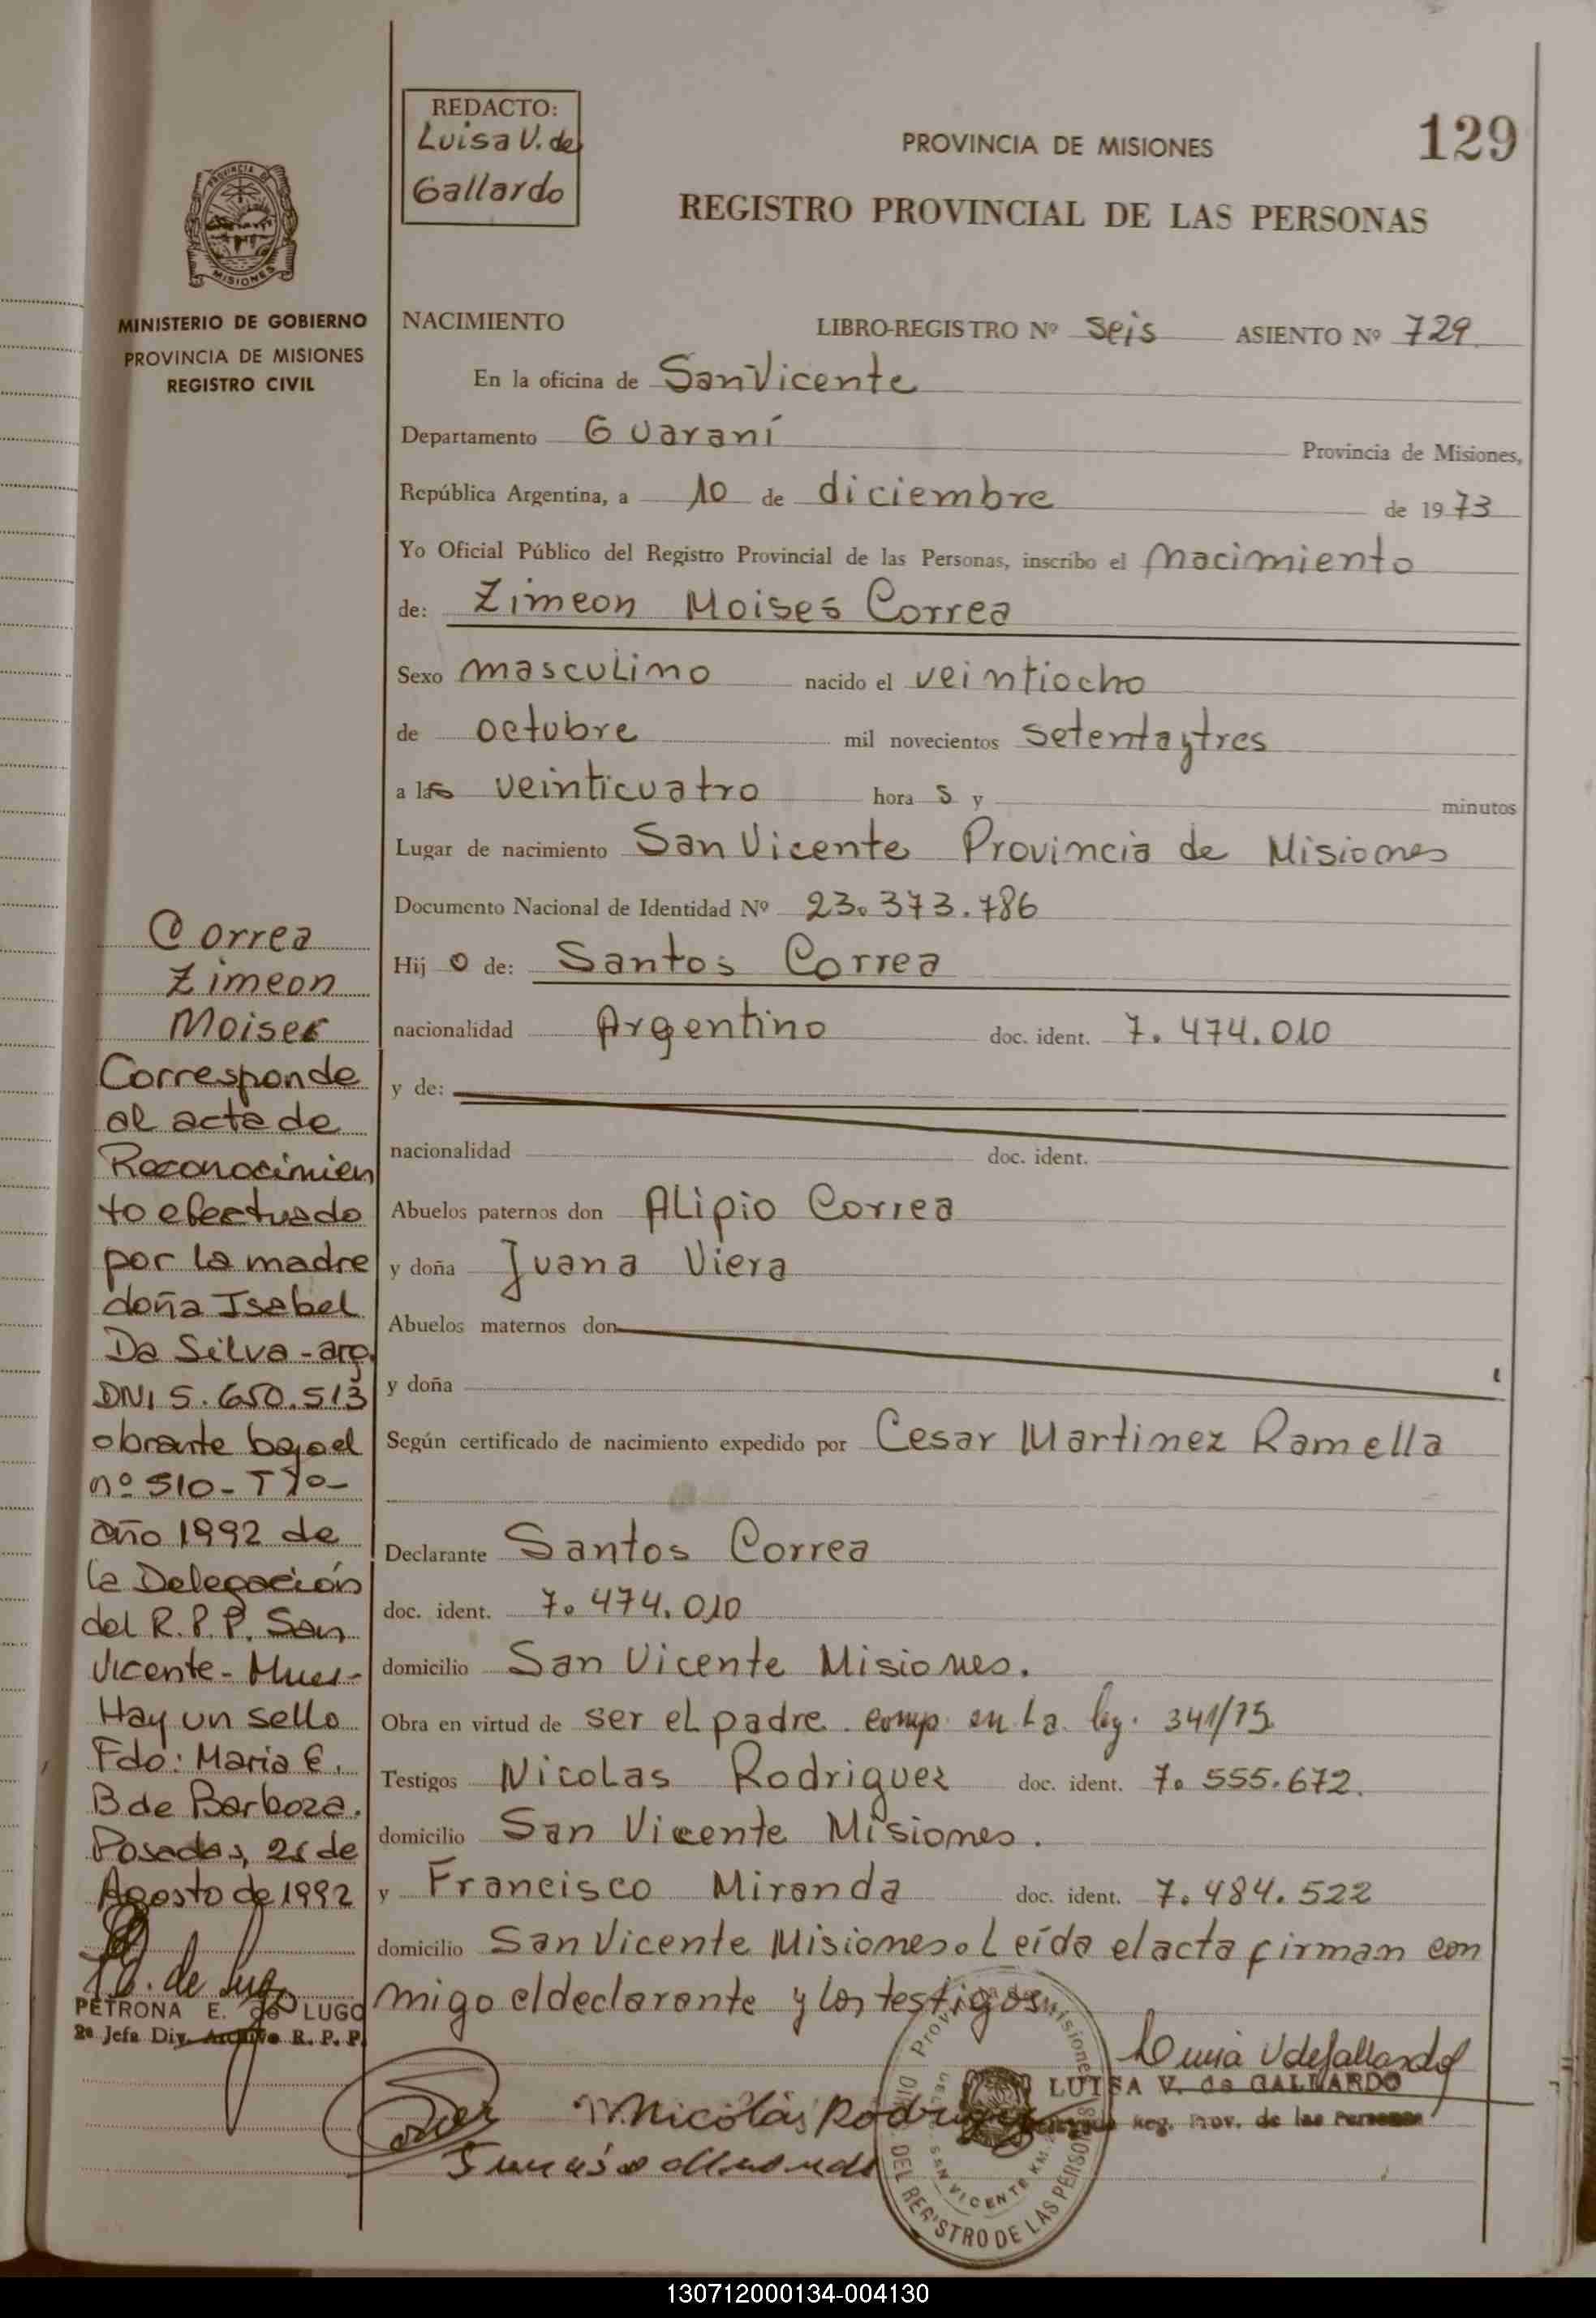 REDACTO:
Luisa V. de
Gallardo
PROVINCIA DE MISIONES
129
REGISTRO PROVINCIAL DE LAS PERSONAS
MISIONES
MINISTERIO DE GOBIERNO
PROVINCIA DE MISIONES
REGISTRO CIVIL
NACIMIENTO LIBRO-REGISTRO Nº Seis ASIENTO Nº 729
En la oficina de San Vicente
Departamento Guaraní Provincia de Misiones,
República Argentina, a 10 de diciembre de 1973
Yo Oficial Público del Registro Provincial de las Personas, inscribo el nacimiento
de: Zimeon Moises Correa
Sexo masculino nacido el veintiocho
de octubre mil novecientos setentaytres
a las veinticuatro hora s y minutos
Lugar de nacimiento San Vicente Provincia de Misiones
Documento Nacional de Identidad Nº 23.373.786
Hij o de: Santos Correa
nacionalidad Argentino doc. ident. 7.474.010
y de:
nacionalidad doc. ident.
Abuelos paternos don Alipio Correa
y doña Juana Viera
Abuelos maternos don
y doña
Según certificado de nacimiento expedido por Cesar Martinez Ramella
Declarante Santos Correa
doc. ident. 7.474.010
domicilio San Vicente Misiones.
Obra en virtud de ser el padre. comp. en la ley. 341/75.
Testigos Nicolas Rodriguez doc. ident. 7.555.672.
domicilio San Vicente Misiones.
y Francisco Miranda doc. ident. 7.484.522
domicilio San Vicente Misiones. Leída el acta firman con
migo el declarante y los testigos
Correa
Zimeon
Moises
Corresponde
al acta de
Reconocimien
to efectuado
por la madre
doña Isabel
Da Silva - arg.
DNI 5.650.513
obrante bajo el
nº 510 - Tº
año 1992 de
la Delegación
del R.P.P. San
Vicente - Mnes-
Hay un sello
Fdo: Maria E.
B de Barboza.
Posadas, 26 de
Agosto de 1992
PETRONA E. de LUGO
2ª Jefa Div. Archivo R. P. P.
Nicolás Rodriguez
LUISA V. de GALLARDO
Reg. Prov. de las Personas
DEL REGISTRO DE LAS PERSONAS
SAN VICENTE KM.
130712000134-004130